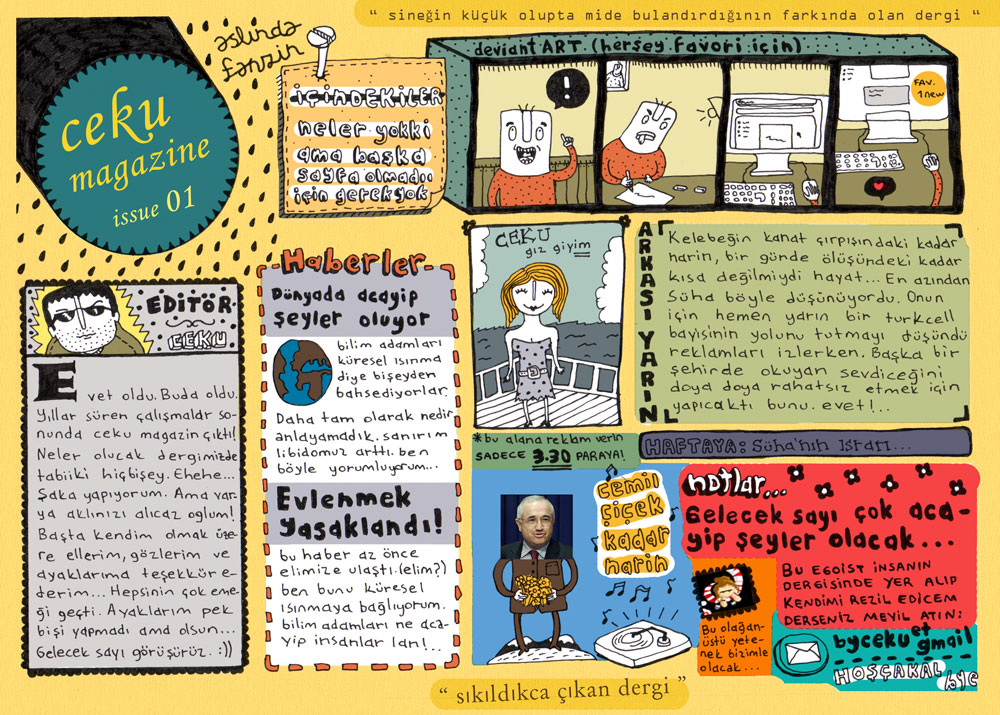 “ sineğin küçük olupta mide bulandırdığının farkında olan dergi “
ceku
magazine
issue 01
aslında
fanzin
İÇİNDEKİLER
neler yokki
ama başka
sayfa olmadıı
için gerekyok
deviant ART (hersey favori için)
!
FAV.
1 new
EDİTÖR
CEKU
Evet oldu. Buda oldu.
Yıllar süren çalışmalar so-
nunda ceku magazin çıktı!
Neler olucak dergimizde
tabiiki hiçbişey. Ehehe...
Şaka yapıyorum. Ama var-
ya aklınızı alıcaz oglum!
Başta kendim olmak üze-
re ellerim, gözlerim ve
ayaklarıma teşekkür e-
derim... Hepsinin çok eme-
ği geçti. Ayaklarım pek
bişi yapmadı ama olsun...
Gelecek sayı görüşürüz. :))
Haberler
Dünyada acayip
şeyler oluyor
bilim adamları
küresel ısınma
diye bişeyden
bahsediyorlar.
Daha tam olarak nedir
anlayamadık. sanırım
libidomuz arttı. ben
böyle yorumluyorum...
Evlenmek
yasaklandı!
bu haber az önce
elimize ulaştı. (elim?)
ben bunu küresel
ısınmaya bağlıyorum.
bilim adamları ne aca-
yip insanlar lan!
CEKU
giz giyim
*bu alana reklam verin
SADECE 3.30 PARAYA!
ARKASI YARIN
Kelebeğin kanat çırpışındaki kadar
narin, bir günde ölüşündeki kadar
kısa değilmiydi hayat... En azından
Süha böyle düşünüyordu. Onun
için hemen yarın bir turkcell
bayisinin yolunu tutmayı düşündü
reklamları izlerken. Başka bir
şehinde okuyan sevdiceğini
doya doya rahatsız etmek için
yapıcaktı bunu. evet!..
HAFTAYA: Süha'nın Israrı...
cemil
çiçek
kadar
narin
notlar...
Gelecek sayı çok aca-
yip şeyler olacak...
BU EGOİST İNSANIN
DERGİSİNDE YER ALIP
KENDİMİ REZİL EDİCEM
DERSENİZ MEYİL ATIN:
Bu olağan-
üstü yete-
nek bizimle
olacak...
byceku et
gmail
HOŞÇAKAL
bye
“ sıkıldıkca çıkan dergi ”